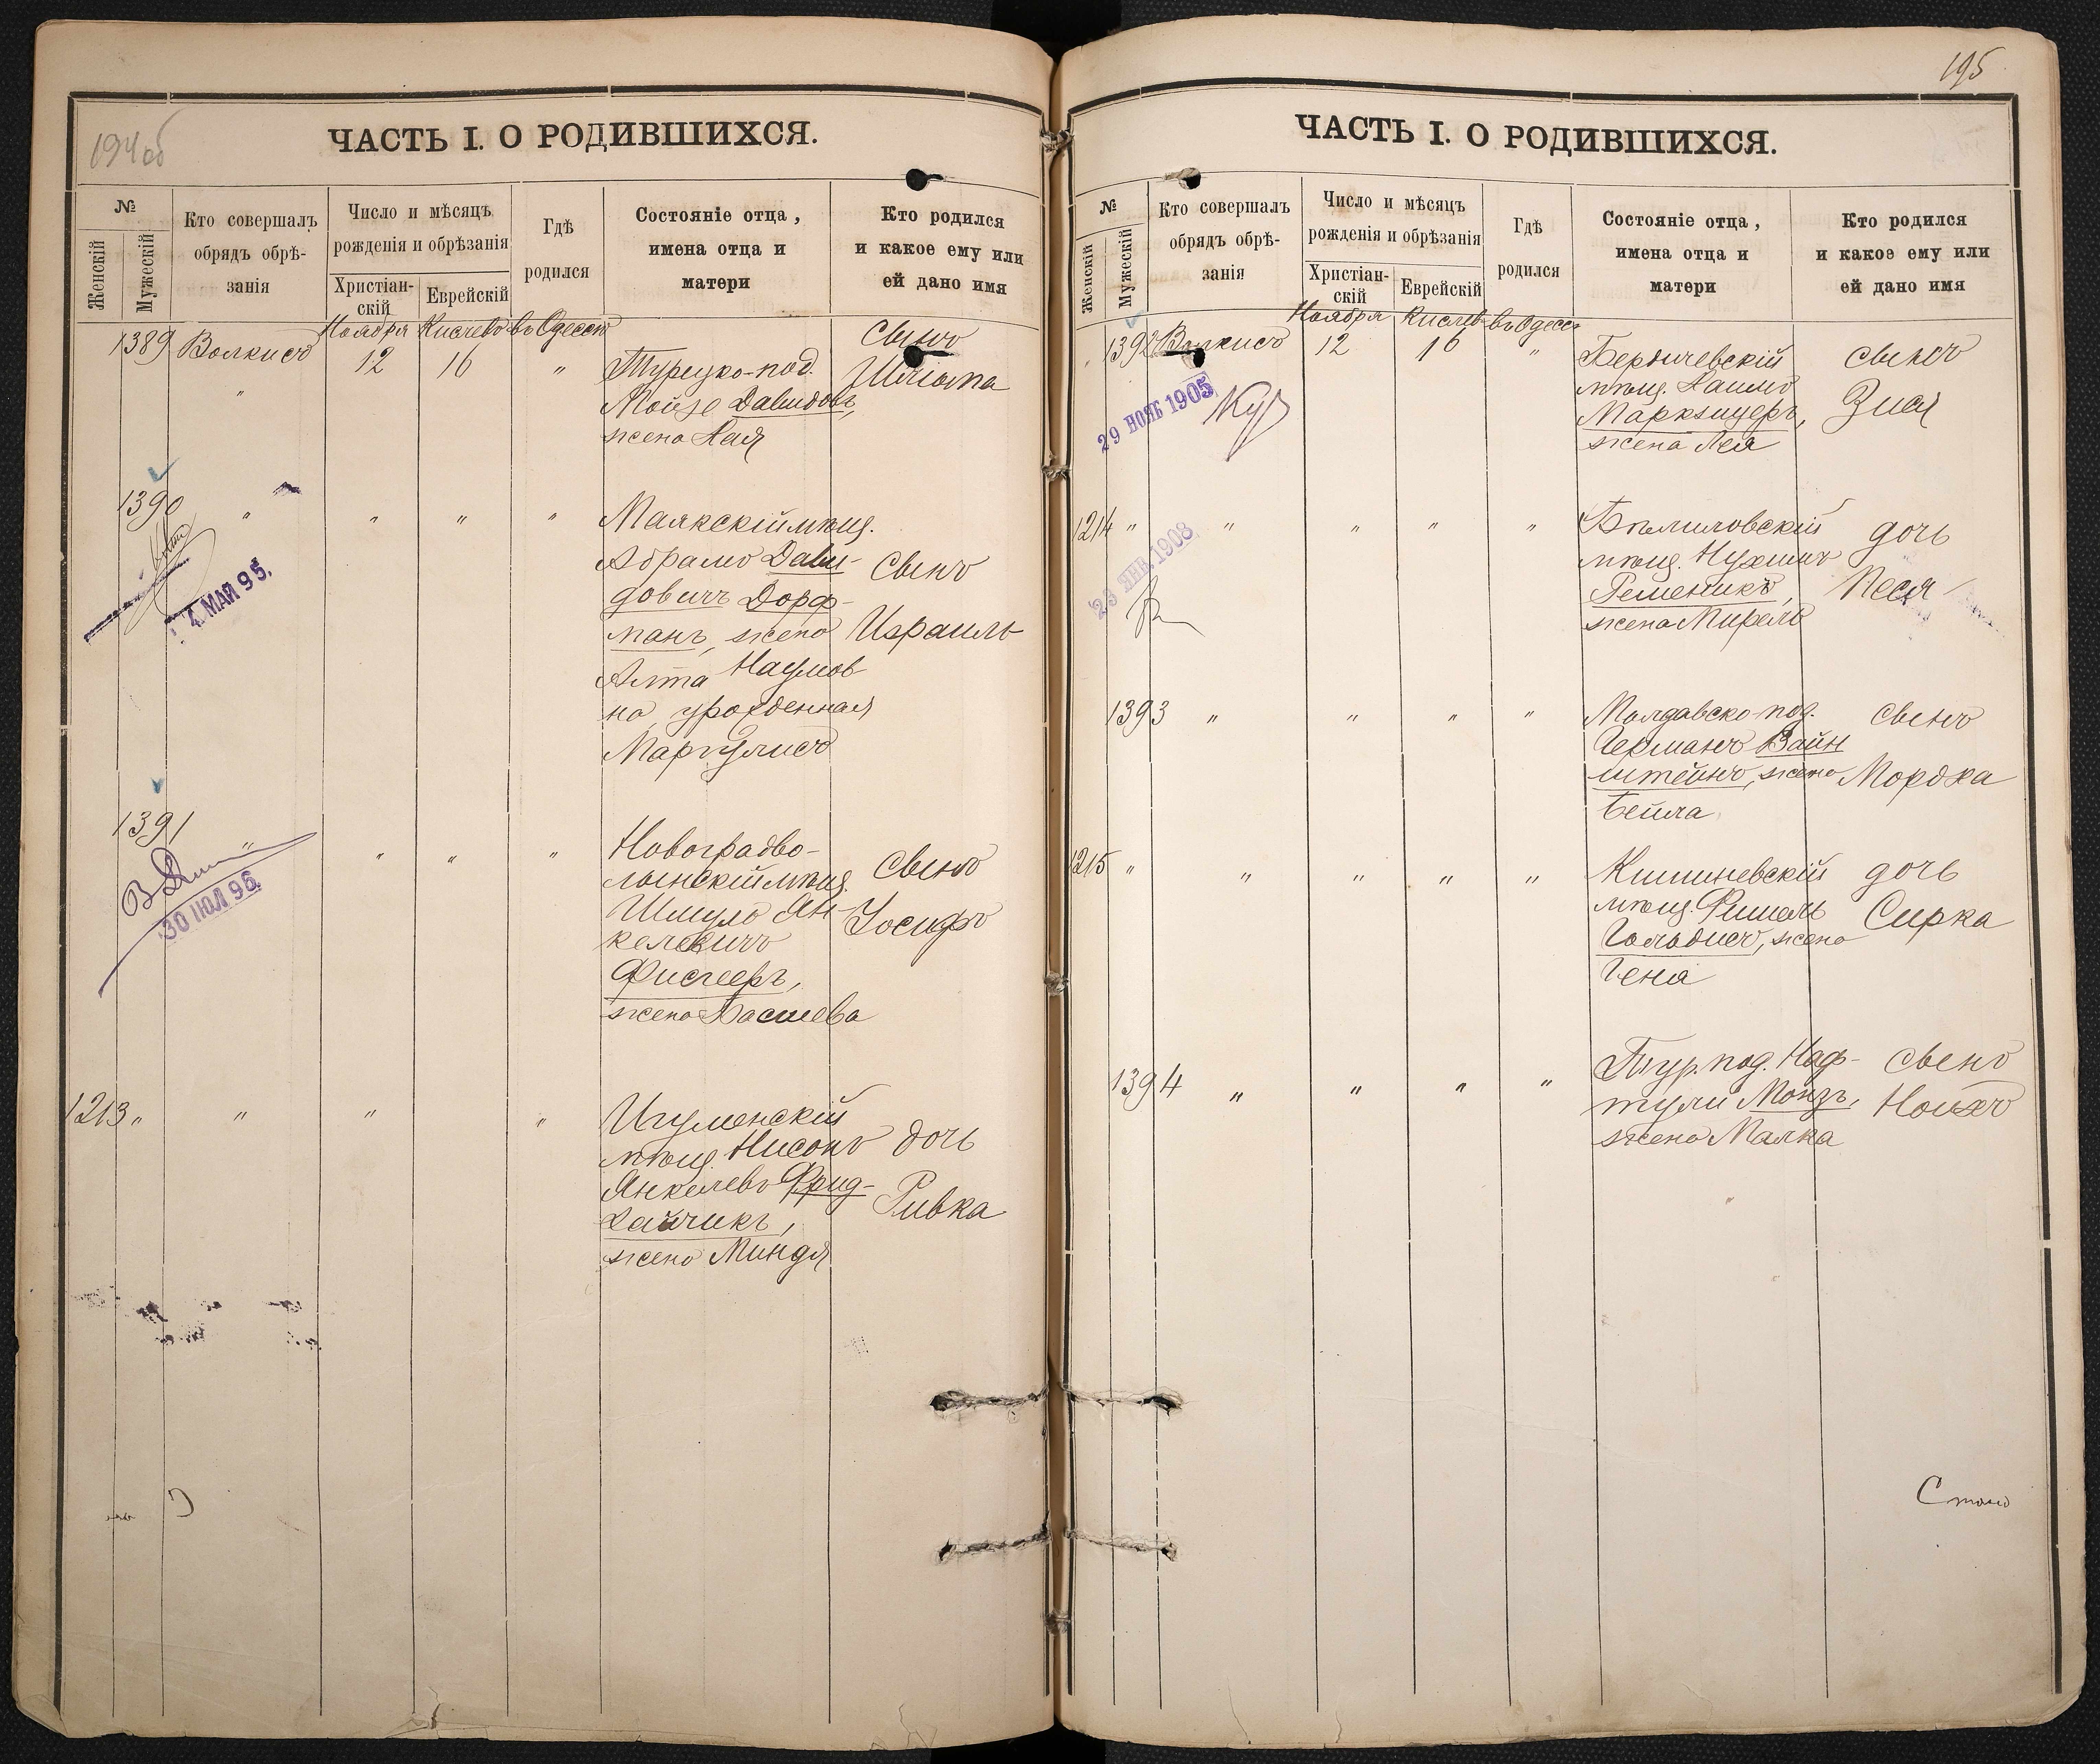 194 об
ЧАСТЬ I. О РОДИВШИХСЯ.
№
Женскій
Мужескій
Кто совершалъ
обрядъ обрѣ-
занія
Число и мѣсяцъ
рожденія и обрѣзанія
Христіан-
скій
Еврейскій
Гдѣ
родился
Состояніе отца,
имена отца и
матери
Кто родился
и какое ему или
ей дано имя
Ноября Кислевъ въ Одессѣ
1389 Волкисъ 12 16 "
Турецко-под.
Мойзе Давидовъ,
жена Хая
Сынъ
Шліома
1390 " " " "
Маякскій мѣщ.
Абрамъ Дави-
довичъ Дорф-
манъ, жена
Алта Наумов
на урожденная
Маргулисъ
Сынъ
Израиль
4 МАЙ 95.
1391 " " " "
Новоградво-
лынскій мѣщ.
Шмуль Ян-
келевичъ
Фислеръ,
жена Басшева
Сынъ
Іосифъ
30 ІЮЛ 96.
1213 " " " "
Игуменскій
мѣщ. Нисонъ
Янкелевъ Фрид-
жена Миндя
дочь
Ривка
195
ЧАСТЬ I. О РОДИВШИХСЯ.
№
Женскій
Мужескій
Кто совершалъ
обрядъ обрѣ-
занія
Число и мѣсяцъ
рожденія и обрѣзанія
Христіан-
скій
Еврейскій
Гдѣ
родился
Состояніе отца,
имена отца и
матери
Кто родился
и какое ему или
ей дано имя
Ноября Кислев въ Одесс
1392 Волкисъ 12 16 "
Бердичевскій
мѣщ. Хаимъ
Маркзицеръ,
жена Лея
сынъ
Зися
29 НОЯБ 1905
1214 " " " " "
Бѣлиловскій
мѣщ. Нухимъ
Решетикъ,
жена Мирель
дочь
Песя
29 ЯНВ. 1908
1393 " " " "
Молдавско-под.
Германъ Вайн
штейнъ, жена
Бейла
сынъ
Мордка
1215 " " " " "
Кишиневскій
мѣщ. Фишель
Гольдисъ, жена
Гена
дочь
Сирка
1394 " " " "
Тур. под. Наф-
тули Монзъ,
жена Малка
сынъ
Ноихъ